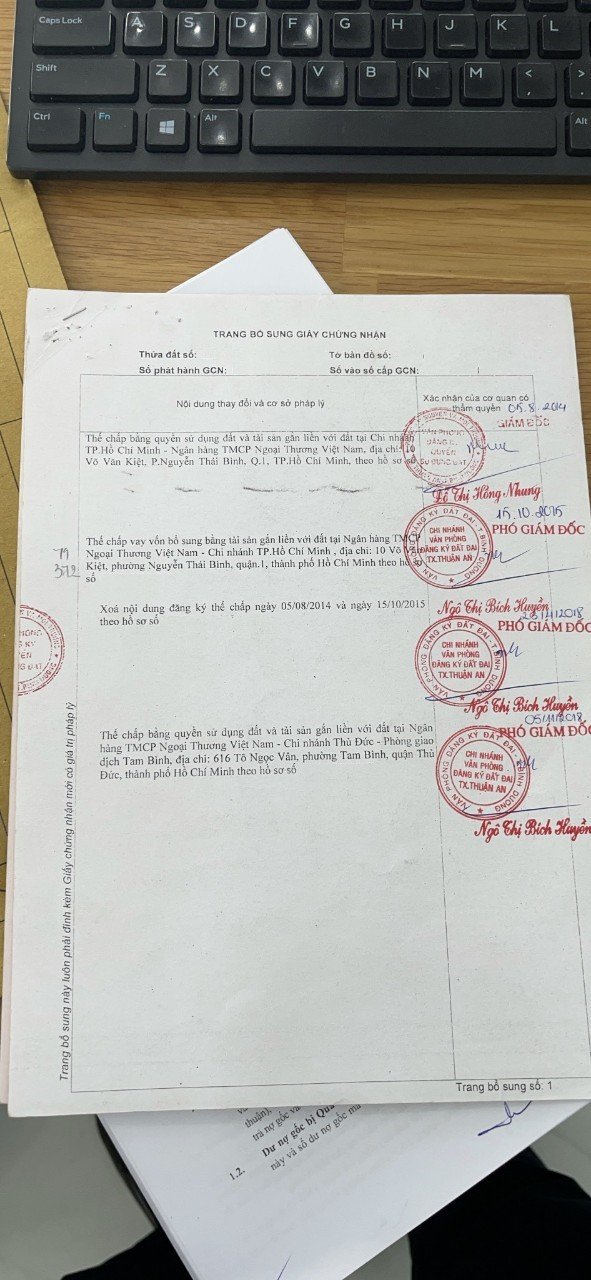 Caps Lock
A
S
D
F
G
H
J
K
L
Shift
Z
X
C
V
B
N
M
<
,
>
Ctrl
Fn
Alt
Alt
TRANG BỔ SUNG GIẤY CHỨNG NHẬN
Thửa đất số:
Tờ bản đồ số:
Số phát hành GCN:
Số vào sổ cấp GCN:
Nội dung thay đổi và cơ sở pháp lý
Xác nhận của cơ quan có
thẩm quyền 05.8.2014
GIÁM ĐỐC
Thế chấp bằng quyền sử dụng đất và tài sản gắn liền với đất tại Chi nhánh
TP.Hồ Chí Minh - Ngân hàng TMCP Ngoại Thương Việt Nam, địa chỉ: 10
Võ Văn Kiệt, P.Nguyễn Thái Bình, Q.1, TP.Hồ Chí Minh, theo hồ sơ số
VĂN PHÒNG
ĐĂNG KÝ
QUYỀN
SỬ DỤNG ĐẤT
Đỗ Thị Hồng Nhung
15.10.2015
PHÓ GIÁM ĐỐC
Thế chấp vay vốn bổ sung bằng tài sản gắn liền với đất tại Ngân hàng TMCP
Ngoại Thương Việt Nam - Chi nhánh TP.Hồ Chí Minh , địa chỉ: 10 Võ Văn
Kiệt, phường Nguyễn Thái Bình, quận.1, thành phố Hồ Chí Minh theo hồ sơ
số
CHI NHÁNH
VĂN PHÒNG
ĐĂNG KÝ ĐẤT ĐAI
TX.THUẬN AN
VĂN PHÒNG ĐĂNG KÝ ĐẤT ĐAI T.BÌNH DƯƠNG
Ngô Thị Bích Huyền
Xoá nội dung đăng ký thế chấp ngày 05/08/2014 và ngày 15/10/2015
theo hồ sơ số
PHÓ GIÁM ĐỐC
CHI NHÁNH
VĂN PHÒNG
ĐĂNG KÝ ĐẤT ĐAI
TX.THUẬN AN
VĂN PHÒNG ĐĂNG KÝ ĐẤT ĐAI T.BÌNH DƯƠNG
Ngô Thị Bích Huyền
05/11/2018
PHÓ GIÁM ĐỐC
Thế chấp bằng quyền sử dụng đất và tài sản gắn liền với đất tại Ngân
hàng TMCP Ngoại Thương Việt Nam - Chi nhánh Thủ Đức - Phòng giao
dịch Tam Bình, địa chỉ: 616 Tô Ngọc Vân, phường Tam Bình, quận Thủ
Đức, thành phố Hồ Chí Minh theo hồ sơ số
CHI NHÁNH
VĂN PHÒNG
ĐĂNG KÝ ĐẤT ĐAI
TX.THUẬN AN
VĂN PHÒNG ĐĂNG KÝ ĐẤT ĐAI T.BÌNH DƯƠNG
Ngô Thị Bích Huyền
Trang bổ sung này luôn phải đính kèm Giấy chứng nhận mới có giá trị pháp lý
Trang bổ sung số: 1
thuận),
trả nợ gốc và
1.2. Dư nợ gốc bị Quá
này và số dư nợ gốc mà